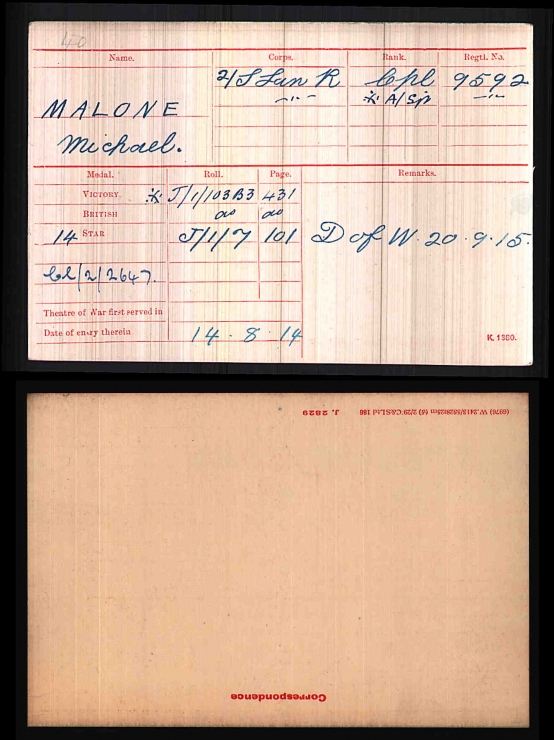 40
Name. Corps. Rank. Regtl. No.
2/S Lan R Cpl 9592
—"— ※ A/Sjt —"—
MALONE
Michael.
Medal. Roll. Page. Remarks.
VICTORY ※ J/1/103B3 431
BRITISH do do
14 STAR J/1/7 101 D of W. 20.9.15.
Cl/2/2647.
Theatre of War first served in
Date of entry therein 14.8.14
K. 1380.
(6976) W.2418/582625m (6) 2/29 C&SLtd 166 J. 2829
Correspondence